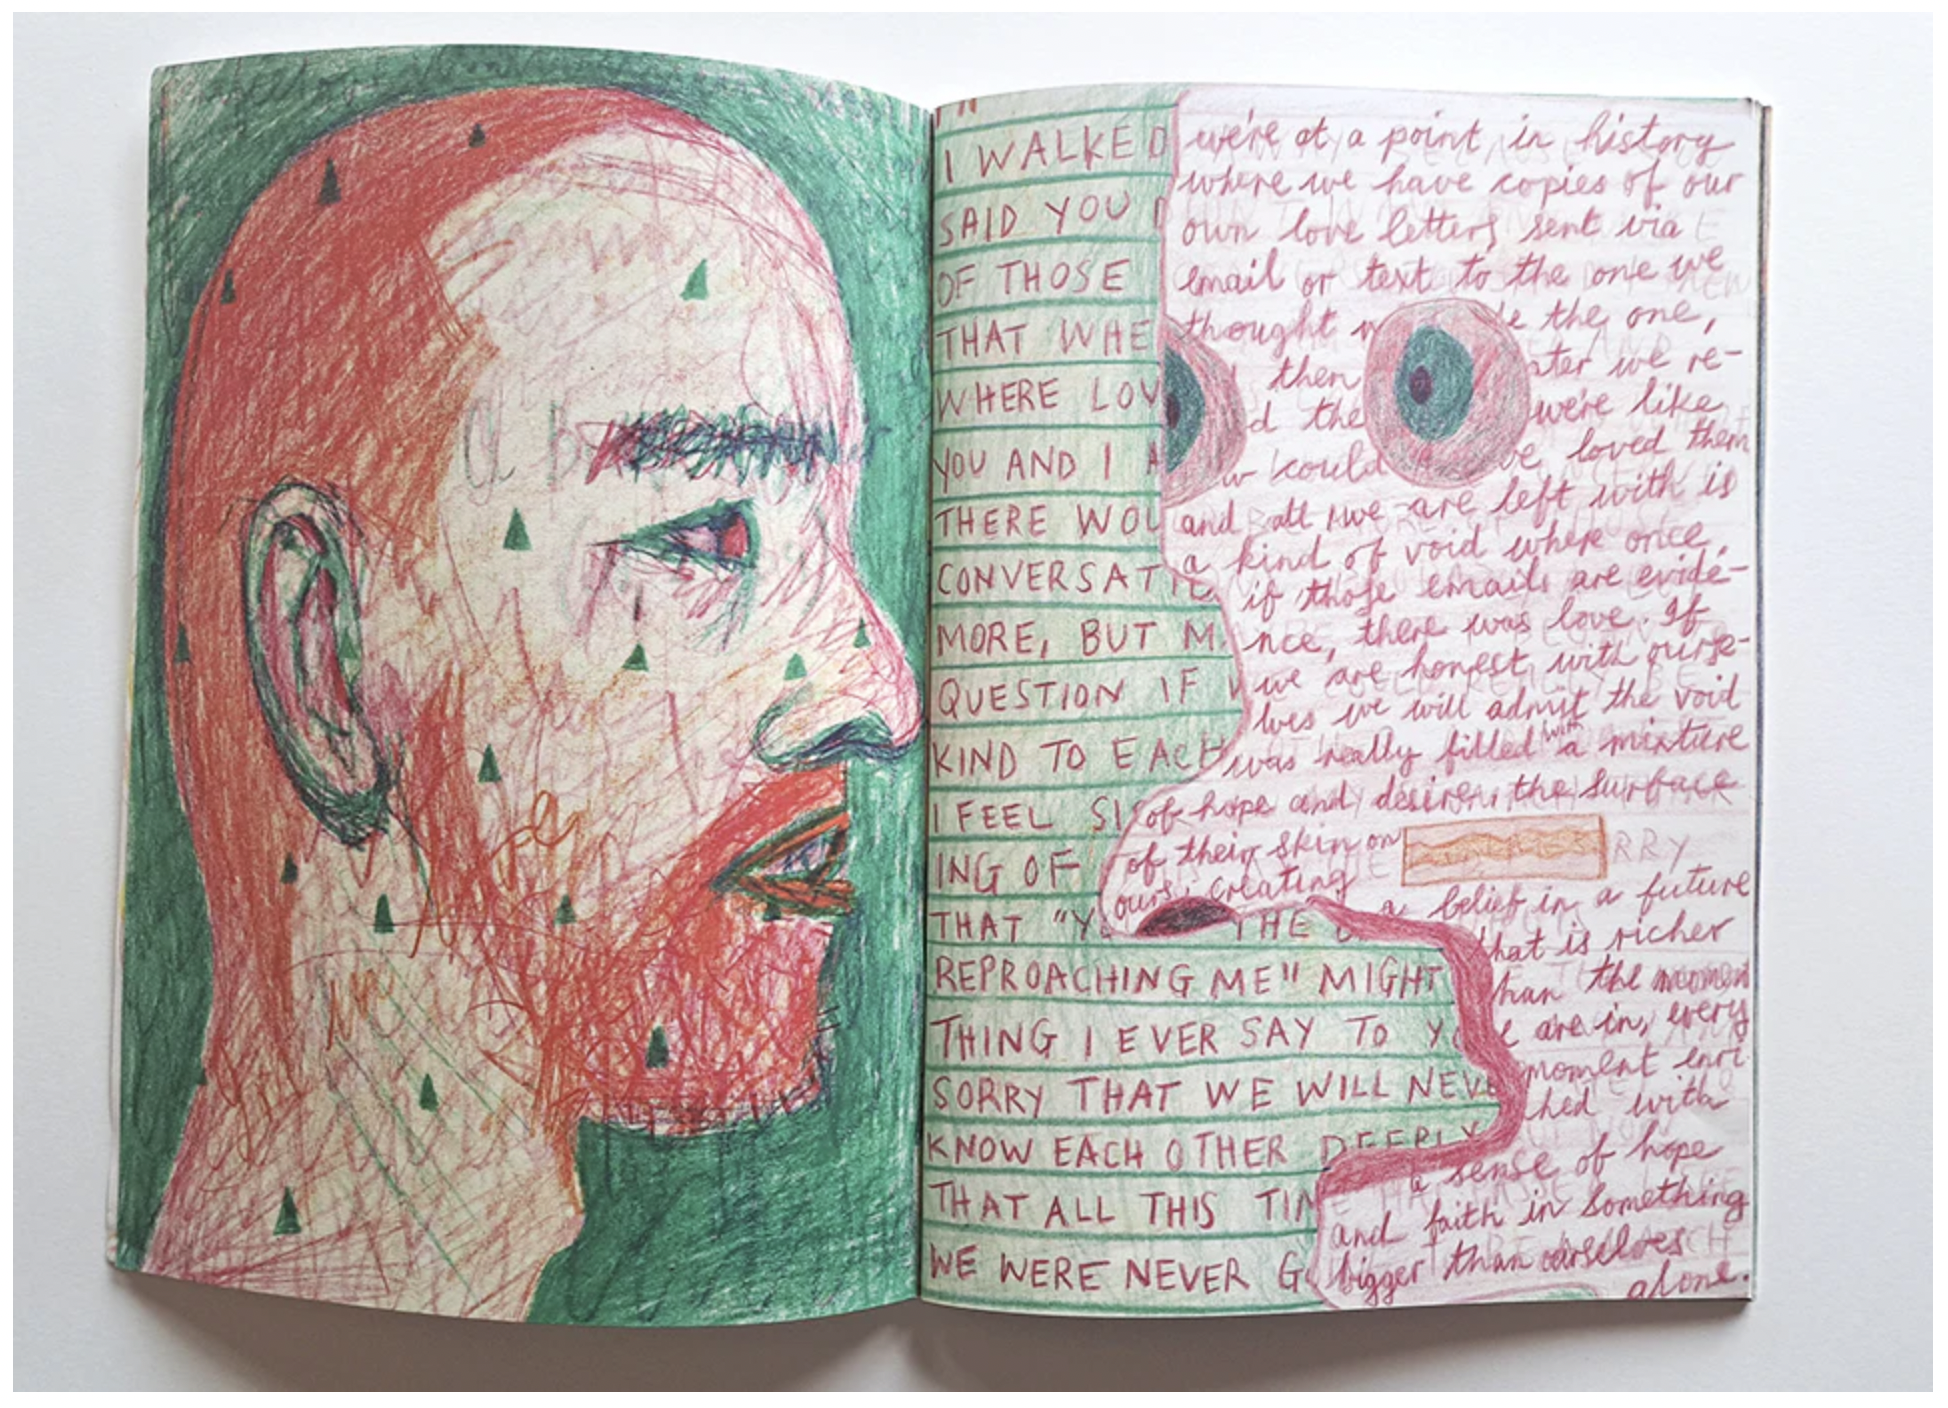 I WALKED
SAID YOU
OF THOSE
THAT WHE
WHERE LOV
YOU AND I
THERE WOU
CONVERSATI
MORE, BUT M
QUESTION IF
KIND TO EACH
I FEEL SI
ING OF
THAT "Y THE
REPROACHING ME" MIGHT
THING I EVER SAY TO Y
SORRY THAT WE WILL NEVE
KNOW EACH OTHER DEEPLY
THAT ALL THIS TIM
WE WERE NEVER G
we're at a point in history
where we have copies of our
own love letters sent via
email or text to the one we
thought the one,
then we re-
d the we're like
w could loved them
and all we are left with is
a kind of void where once,
if those emails are evide-
nce, there was love. If
we are honest with ourse-
lves we will admit the void
was really filled with a mixture
of hope and desire, the surface
of their skin on
RRY
ours, creating
a belief in a future
that is richer
han the momen
e are in, every
moment enri
ched with
a sense of hope
and faith in something
bigger than ourselves
alone.